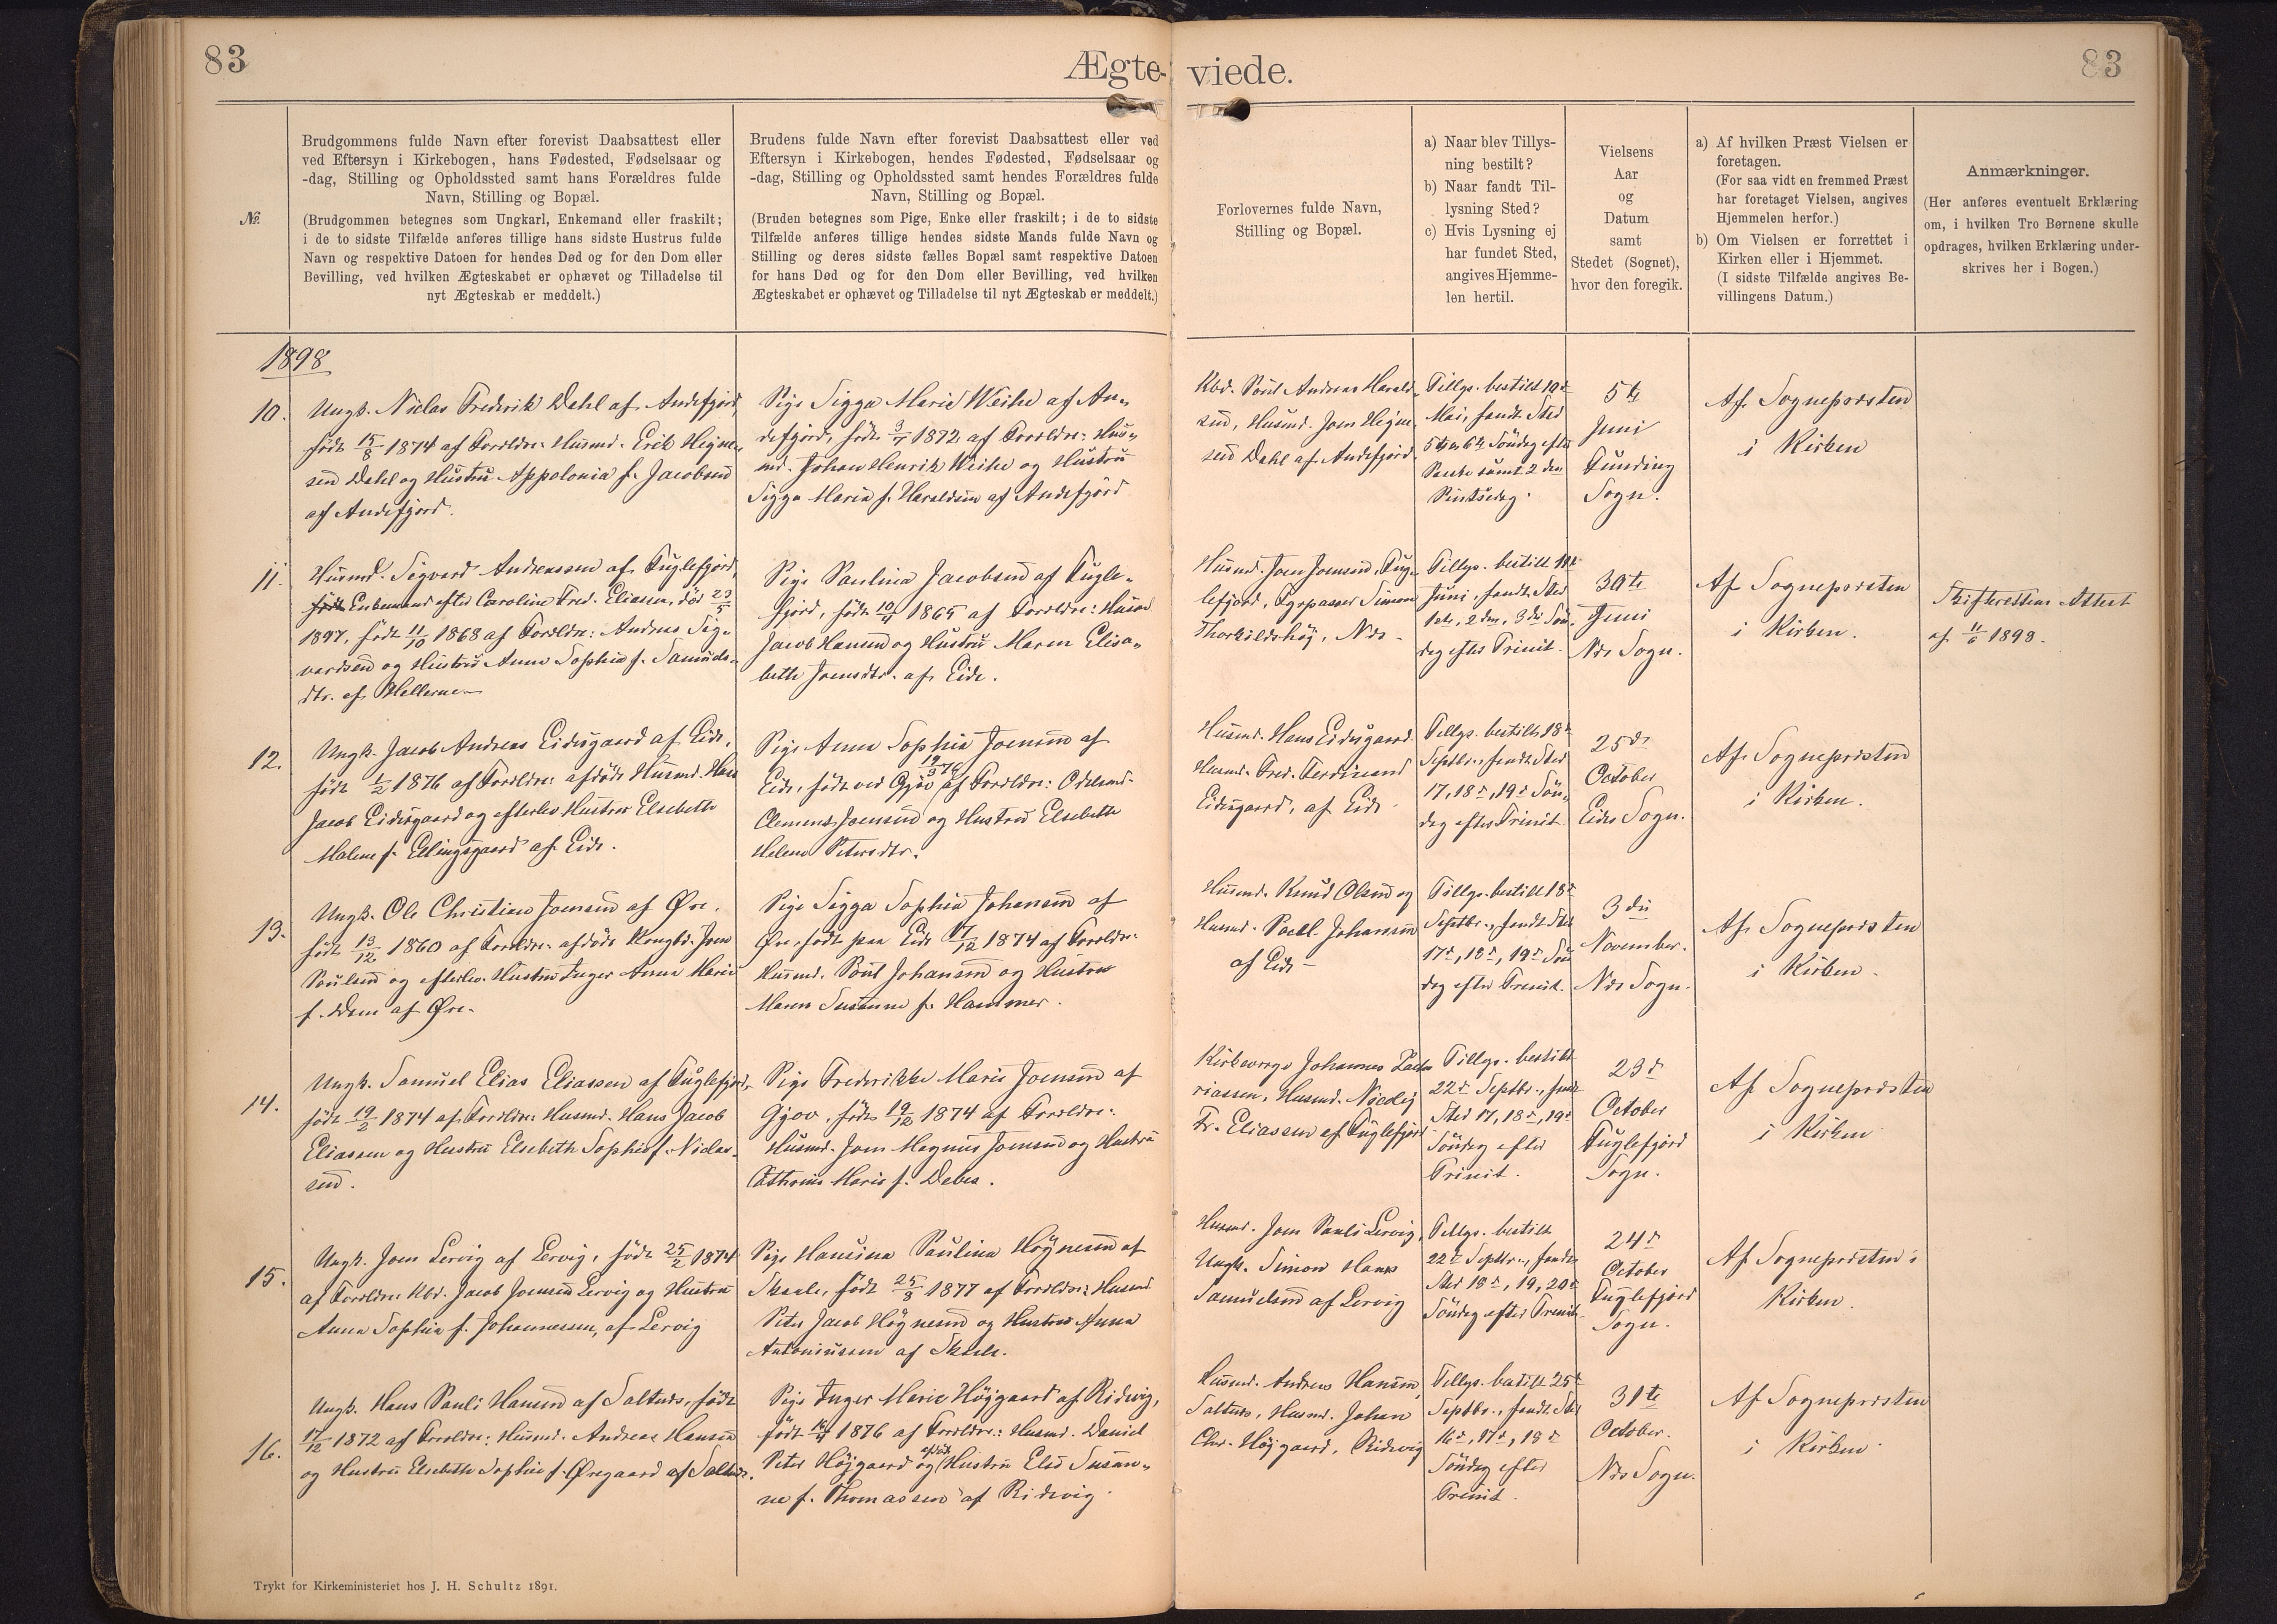 83
Ægte-
viede.
83
№.
Brudgommens fulde Navn efter forevist Daabsattest eller
ved Eftersyn i Kirkebogen, hans Fødested, Fødselsaar og
-dag, Stilling og Opholdssted samt hans Forældres fulde
Navn, Stilling og Bopæl.
(Brudgommen betegnes som Ungkarl, Enkemand eller fraskilt;
i de to sidste Tilfælde anføres tillige hans sidste Hustrus fulde
Navn og respektive Datoen for hendes Død og for den Dom eller
Bevilling, ved hvilken Ægteskabet er ophævet og Tilladelse til
nyt Ægteskab er meddelt.)
Brudens fulde Navn efter forevist Daabsattest eller ved
Eftersyn i Kirkebogen, hendes Fødested, Fødselsaar og
-dag, Stilling og Opholdssted samt hendes Forældres fulde
Navn, Stilling og Bopæl.
(Bruden betegnes som Pige, Enke eller fraskilt; i de to sidste
Tilfælde anføres tillige hendes sidste Mands fulde Navn og
Stilling og deres sidste fælles Bopæl samt respektive Datoen
for hans Død og for den Dom eller Bevilling, ved hvilken
Ægteskabet er ophævet og Tilladelse til nyt Ægteskab er meddelt.)
Forlovernes fulde Navn,
Stilling og Bopæl.
a) Naar blev Tillys-
ning bestilt?
b) Naar fandt Til-
lysning Sted?
c) Hvis Lysning ej
har fundet Sted,
angives Hjemme-
len hertil.
Vielsens
Aar
og
Datum
samt
Stedet (Sognet),
hvor den foregik.
a) Af hvilken Præst Vielsen er
foretagen.
(For saa vidt en fremmed Præst
har foretaget Vielsen, angives
Hjemmelen herfor.)
b) Om Vielsen er forrettet i
Kirken eller i Hjemmet.
(I sidste Tilfælde angives Be-
villingens Datum.)
Anmærkninger.
(Her anføres eventuelt Erklæring
om, i hvilken Tro Børnene skulle
opdrages, hvilken Erklæring under-
skrives her i Bogen.)
1898
10.
Ungk. Niclas Frederik Dahl af Andefjord,
født 15/8 1874 af Forældre: Husmd. Erik Hejne-
sen Dahl og Hustru Appolonia f. Jacobsen
af Andefjord.
Pige Sigga Marie Weihe af An-
defjord, født 1872 af Forældre: Hus-
md. Johan Henrik Weihe og Hustru
Sigga Maria f. Haraldsen af Andefjord
Kbd. Poul Andreas Harald-
sen, Husmd. Joen Hejne-
sen Dahl af Andefjord.
Tillys. bestilt 10de
Mai, fandt Sted
5te og 6te Söndag efter
Paaske samt 2den
Pintsedag.
5te
Juni
Funding
Sogn.
Af Sognepræsten
i Kirken
11.
Husmd. Sigvard Andreassen af Fuglefjord,
født Enkemand efter Caroline Fred. Eliasen, död 23/5
1897, født 11/10 1868 af Forældre: Andreas Sig-
vardsen og Hustru Anna Sophie f. Samuels-
dtr. af Hellerne
Pige Paulina Jacobsen af Fugle-
fjord, født 1865 af Forældre: Husmd
Jacob Hansen og Hustru Maren Elisa-
beth Joensdtr. af Eide.
Husmd. Joen Joensen, Fug-
lefjord, Simon
Thorkildshøj, Nds
Tillys. bestilt
Juni, fandt Sted
1ste, 2den, 3die Sön-
dag efter Trinit.
30te
Juni
Nds Sogn.
Af Sognepræsten
i Kirken.
Skifterettens Attest
af 11/6 1898.
12.
Ungk. Jacob Andreas Eidesgaard af Eide,
født 1/2 1876 af Forældre: afdöde Husmd. Hans
Jacob Eidesgaard og efterlev. Hustru Elsebeth
Malene f. Ellingsgaard af Eide.
Pige Anna Sophie Joensen af
Eide, født ved Gjov 19/3 76 af Forældre: Odelsmd.
Clemens Joensen og Hustru Elsebeth
Helene Petersdtr.
Husmd. Hans Eidesgaard
Husmd. Fred. Ferdinand
Eidesgaard, af Eide.
Tillys. bestilt 18de
Septbr., fandt Sted
17, 18de, 19de Sön-
dag efter Trinit.
25de
October
Eides Sogn.
Af Sognepræsten
i Kirken.
13.
Ungk. Ole Christian Joensen af Øre,
født 13/12 1860 af Forældre: afdöde Kongsbd. Joen
Poulsen og efterlev. Hustru Inger Anna Marie
f. Dam af Øre.
Pige Sigga Sophie Johansen af
Øre, født paa Eide 17/12 1874 af Forældre:
Husmd. Poul Johansen og Hustru
Maren Susanna f. Hammer.
Husmd. Knud Olsen og
Husmd. Poul Johansen
af Eide
Tillys. bestilt 18de
Septbr., fandt Sted
17de, 18de, 19de Sön-
dag efter Trinit.
3die
November.
Nds Sogn.
Af Sognepræsten
i Kirken.
14.
Ungk. Samuel Elias Eliassen af Fuglefjord,
født 19/2 1874 af Forældre: Husmd. Hans Jacob
Eliassen og Hustru Elsebeth Sophie f. Niclas-
sen.
Pige Frederikke Marie Joensen af
Gjov, født 19/12 1874 af Forældre:
Husmd. Joen Magnus Joensen og Hustru
Cathrine Marie f. Debes.
Kirkeværge Johannes Zacha
riassen, Husmd.
Fr. Eliassen af Fuglefjord
Tillys. bestilt
22de Septbr., fandt
Sted 17, 18de, 19de
Söndag efter
Trinit.
23de
October
Fuglefjord
Sogn.
Af Sognepræsten
i Kirken
15.
Ungk. Joen Lervig af Lervig, født 25/2 1874
af Forældre: Kbd. Jacob Joensen Lervig og Hustru
Anna Sophie f. Johannessen, af Lervig
Pige Hansina Paulina Högnesen af
Skaale, født 25/8 1877 af Forældre: Husmd
Peter Jacob Högnesen og Hustru Anna
Antoniussen af Skaale.
Husmd. Joen Pauli Lervig,
Ungk. Simon Hans
Samuelsen af Lervig
Tillys. bestilt
22de Septbr., fandt
Sted 18de, 19, 20de
Söndag efter Trinit.
24de
October
Fuglefjord
Sogn.
Af Sognepræsten i
Kirken.
16.
Ungk. Hans Pauli Hansen af Saltnes, født
17/12 1872 af Forældre: Husmd. Andreas Hansen
og Hustru Elsebeth Sophie f. Øregaard af Saltnes.
Pige Inger Marie Höjgaard af Ridevig,
født 1876 af Forældre: Husmd. Daniel
Peter Höjgaard og afdöde Hustru Else Susan-
ne f. Thomassen af Ridevig.
Husmd. Andreas Hansen,
Saltnes, Husmd. Johan
Chr. Höjgaard, Ridevig
Tillys. bestilt 25de
Septbr., fandt Sted
16de, 17de, 18de
Söndag efter
Trinit.
31te
October.
Nds Sogn.
Af Sognepræsten
i Kirken.
Trykt for Kirkeministeriet hos J. H. Schultz 1891.